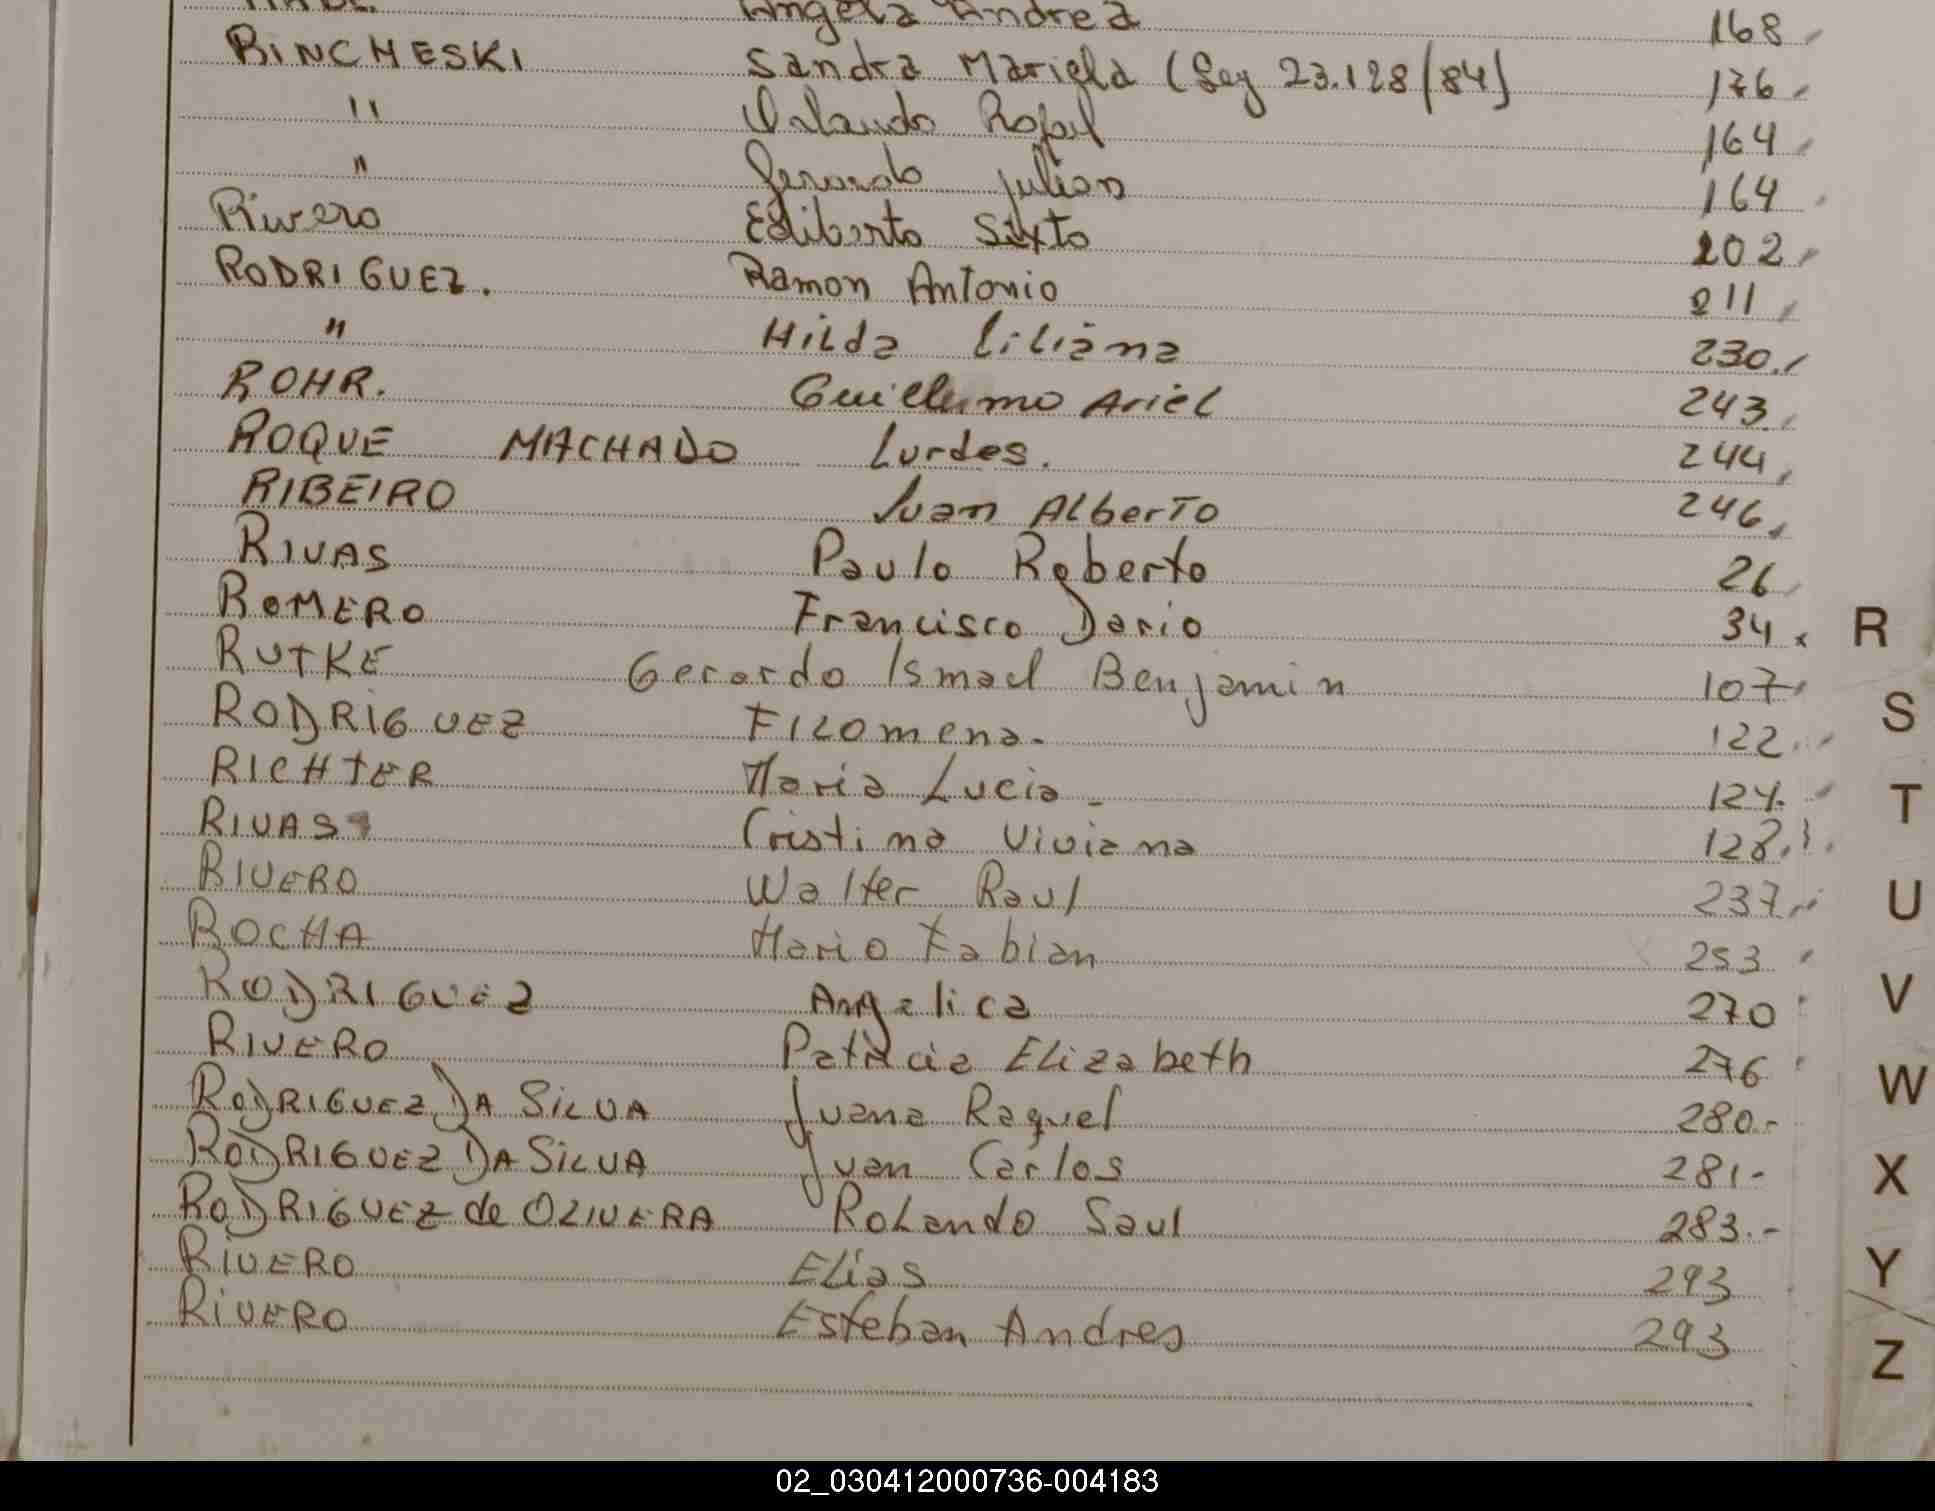 Angela Andrea 168
RINCHESKI Sandra Mariela (Ley 23.128/84) 176
" Orlando Rafael 164
" Gerardo Julian 164
Rivero Ediberto Sixto 202
RODRIGUEZ. Ramon Antonio 211
" Hilda Liliana 230
ROHR. Guillermo Ariel 243
ROQUE MACHADO Lurdes. 244
RIBEIRO Juan Alberto 246
RIVAS Paulo Roberto 26
ROMERO Francisco Dario 34 R
RUTKE Gerardo Ismael Benjamin 107
RODRIGUEZ Filomena. 122 S
RICHTER Maria Lucia 124 T
RIVAS Cristina Viviana 128
RIVERO Walter Raul 237 U
ROCHA Mario Fabian 253
RODRIGUEZ Angelica 270 V
RIVERO Patricia Elizabeth 276 W
RODRIGUEZ DA SILVA Juana Raquel 280.-
RODRIGUEZ DA SILVA Juan Carlos 281- X
RODRIGUEZ de OLIVERA Rolando Saul 283.-
RIVERO Elias 293 Y
RIVERO Esteban Andres 293
Z
02_030412000736-004183